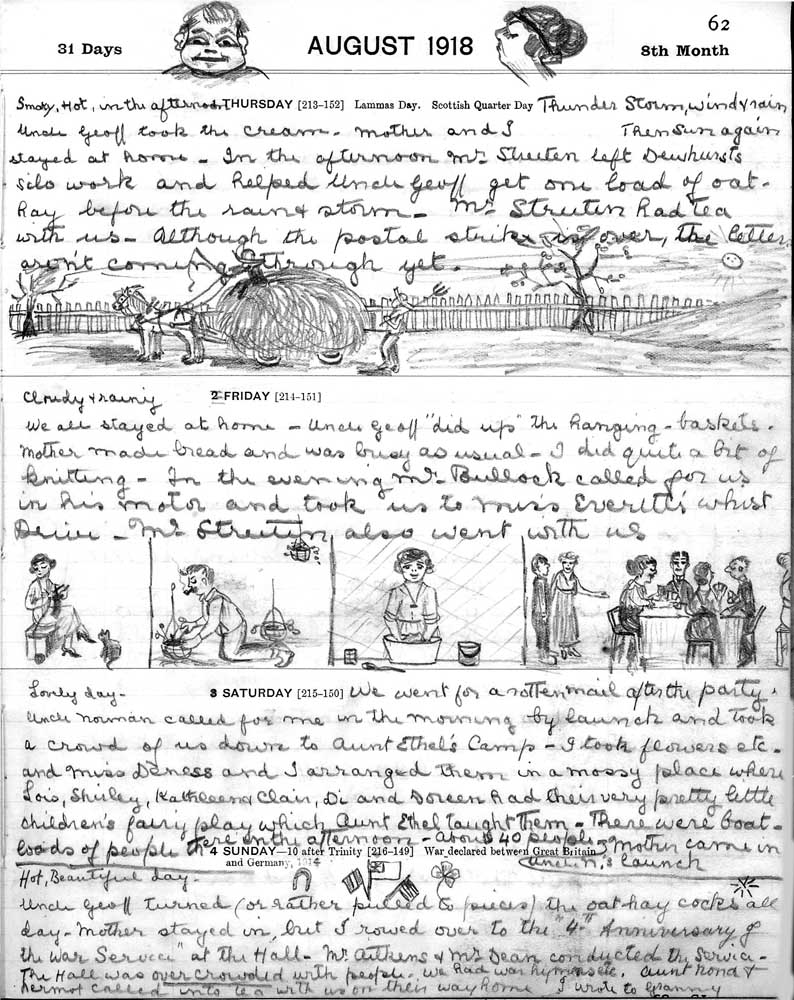 62
31 Days AUGUST 1918 8th Month
Smoky, Hot, in the afternoon THURSDAY [213-152] Lammas Day. Scottish Quarter Day Thunder Storm, wind & rain
Uncle Geoff took the cream - Mother and I Then Sun again
stayed at home - In the afternoon Mr. Streeten left Dewhurst's
silo work and helped Uncle Geoff get one load of oat-
hay before the rain & storm - Mr. Streeten had tea
with us - Although the postal strike is over, the letters
aren't coming through yet.
Cloudy & rainy 2 FRIDAY [214-151]
We all stayed at home - Uncle Geoff "did up" the hanging-baskets.
Mother made bread and was busy as usual - I did quite a bit of
knitting - In the evening Mr. Bullock called for us
in his motor and took us to Miss Everett's whist
Drive - Mr. Streeten also went with us -
Lovely day - 3 SATURDAY [215-150] We went for a rotten mail after the party.
Uncle Norman called for me in the morning by launch and took
a crowd of us down to Aunt Ethel's Camp - I took flowers etc.
and Miss and I arranged them in a mossy place where
Lois, Shirley, Kathleen & Clair, Di and Doreen had their very pretty little
children's fairy play which Aunt Ethel taught them - There were boat-
loads of people there in the afternoon - About 40 people. Mother came in
Uncle N's launch
4 SUNDAY-10 after Trinity [216-149] War declared between Great Britain
and Germany, 1914
Hot, Beautiful day.
Uncle Geoff turned (or rather pulled to pieces) the oat-hay cocks all
day - Mother stayed in, but I rowed over to the "4th Anniversary of
the War Service" at the Hall - Mr. Aitkens & Mr. Dean conducted the Service -
The Hall was over crowded with people. We had war hymns etc. Aunt &
called into tea with us on their way home I wrote to Granny